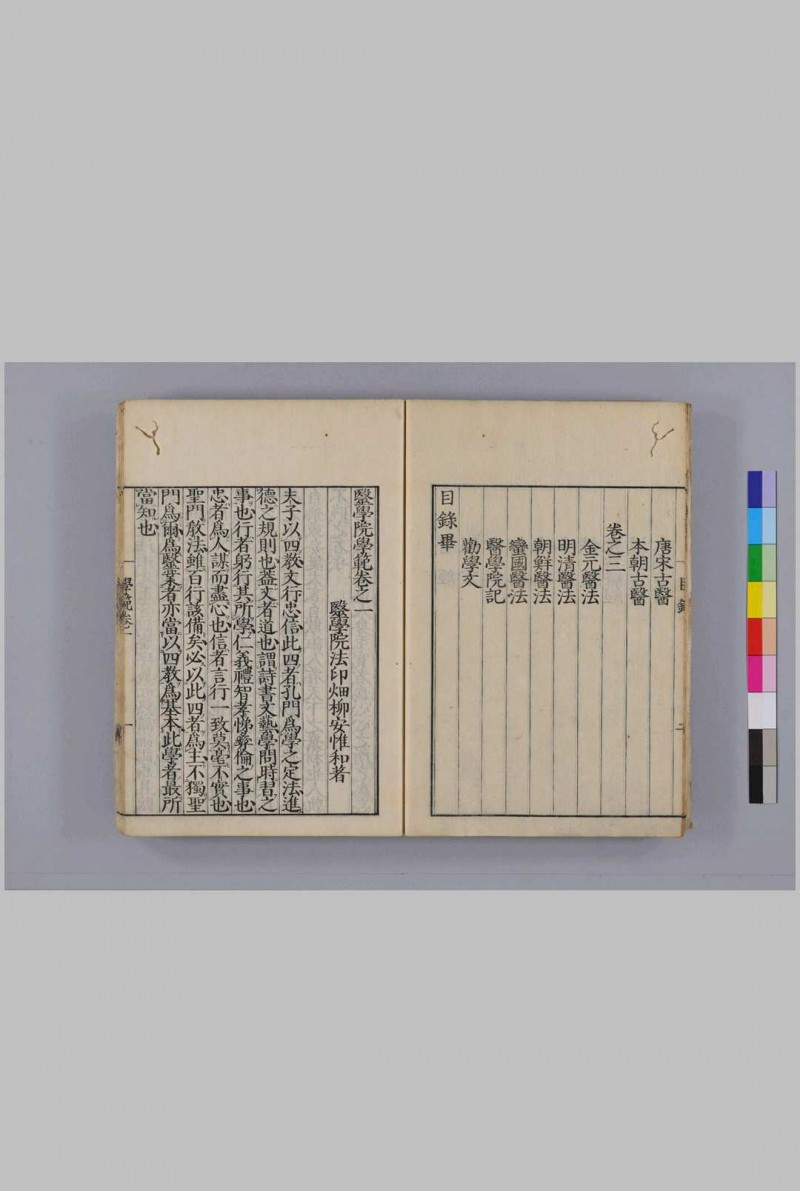 唐宋古醫
本朝古醫
卷之三
金元醫法
明清醫法
朝鮮醫法
蠻國醫法
醫學院記
勸學文
目錄畢
目錄
二
醫學院學範卷之一
醫學院法印畑柳安惟和著
夫子以四教文行忠信此四者孔門爲學之定法進
德之規則也蓋文者道也謂詩書文藝學問時習之
事也行者躬行其所學仁義禮智孝悌彝倫之事也
忠者爲人謀而盡心也信者言行一致莫毫不實也
聖門教法雖百行該備矣必以此四者爲主不獨聖
門爲爾爲醫業者亦當以四教爲基本此學者最所
當知也
學範卷一
一